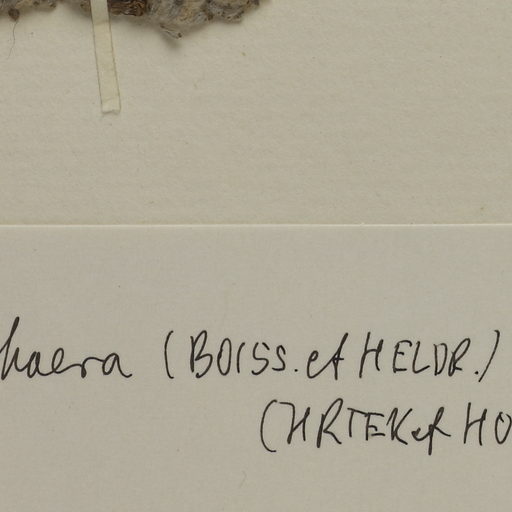 haera (BOISS. et HELDR.)
(HRTEK et HO